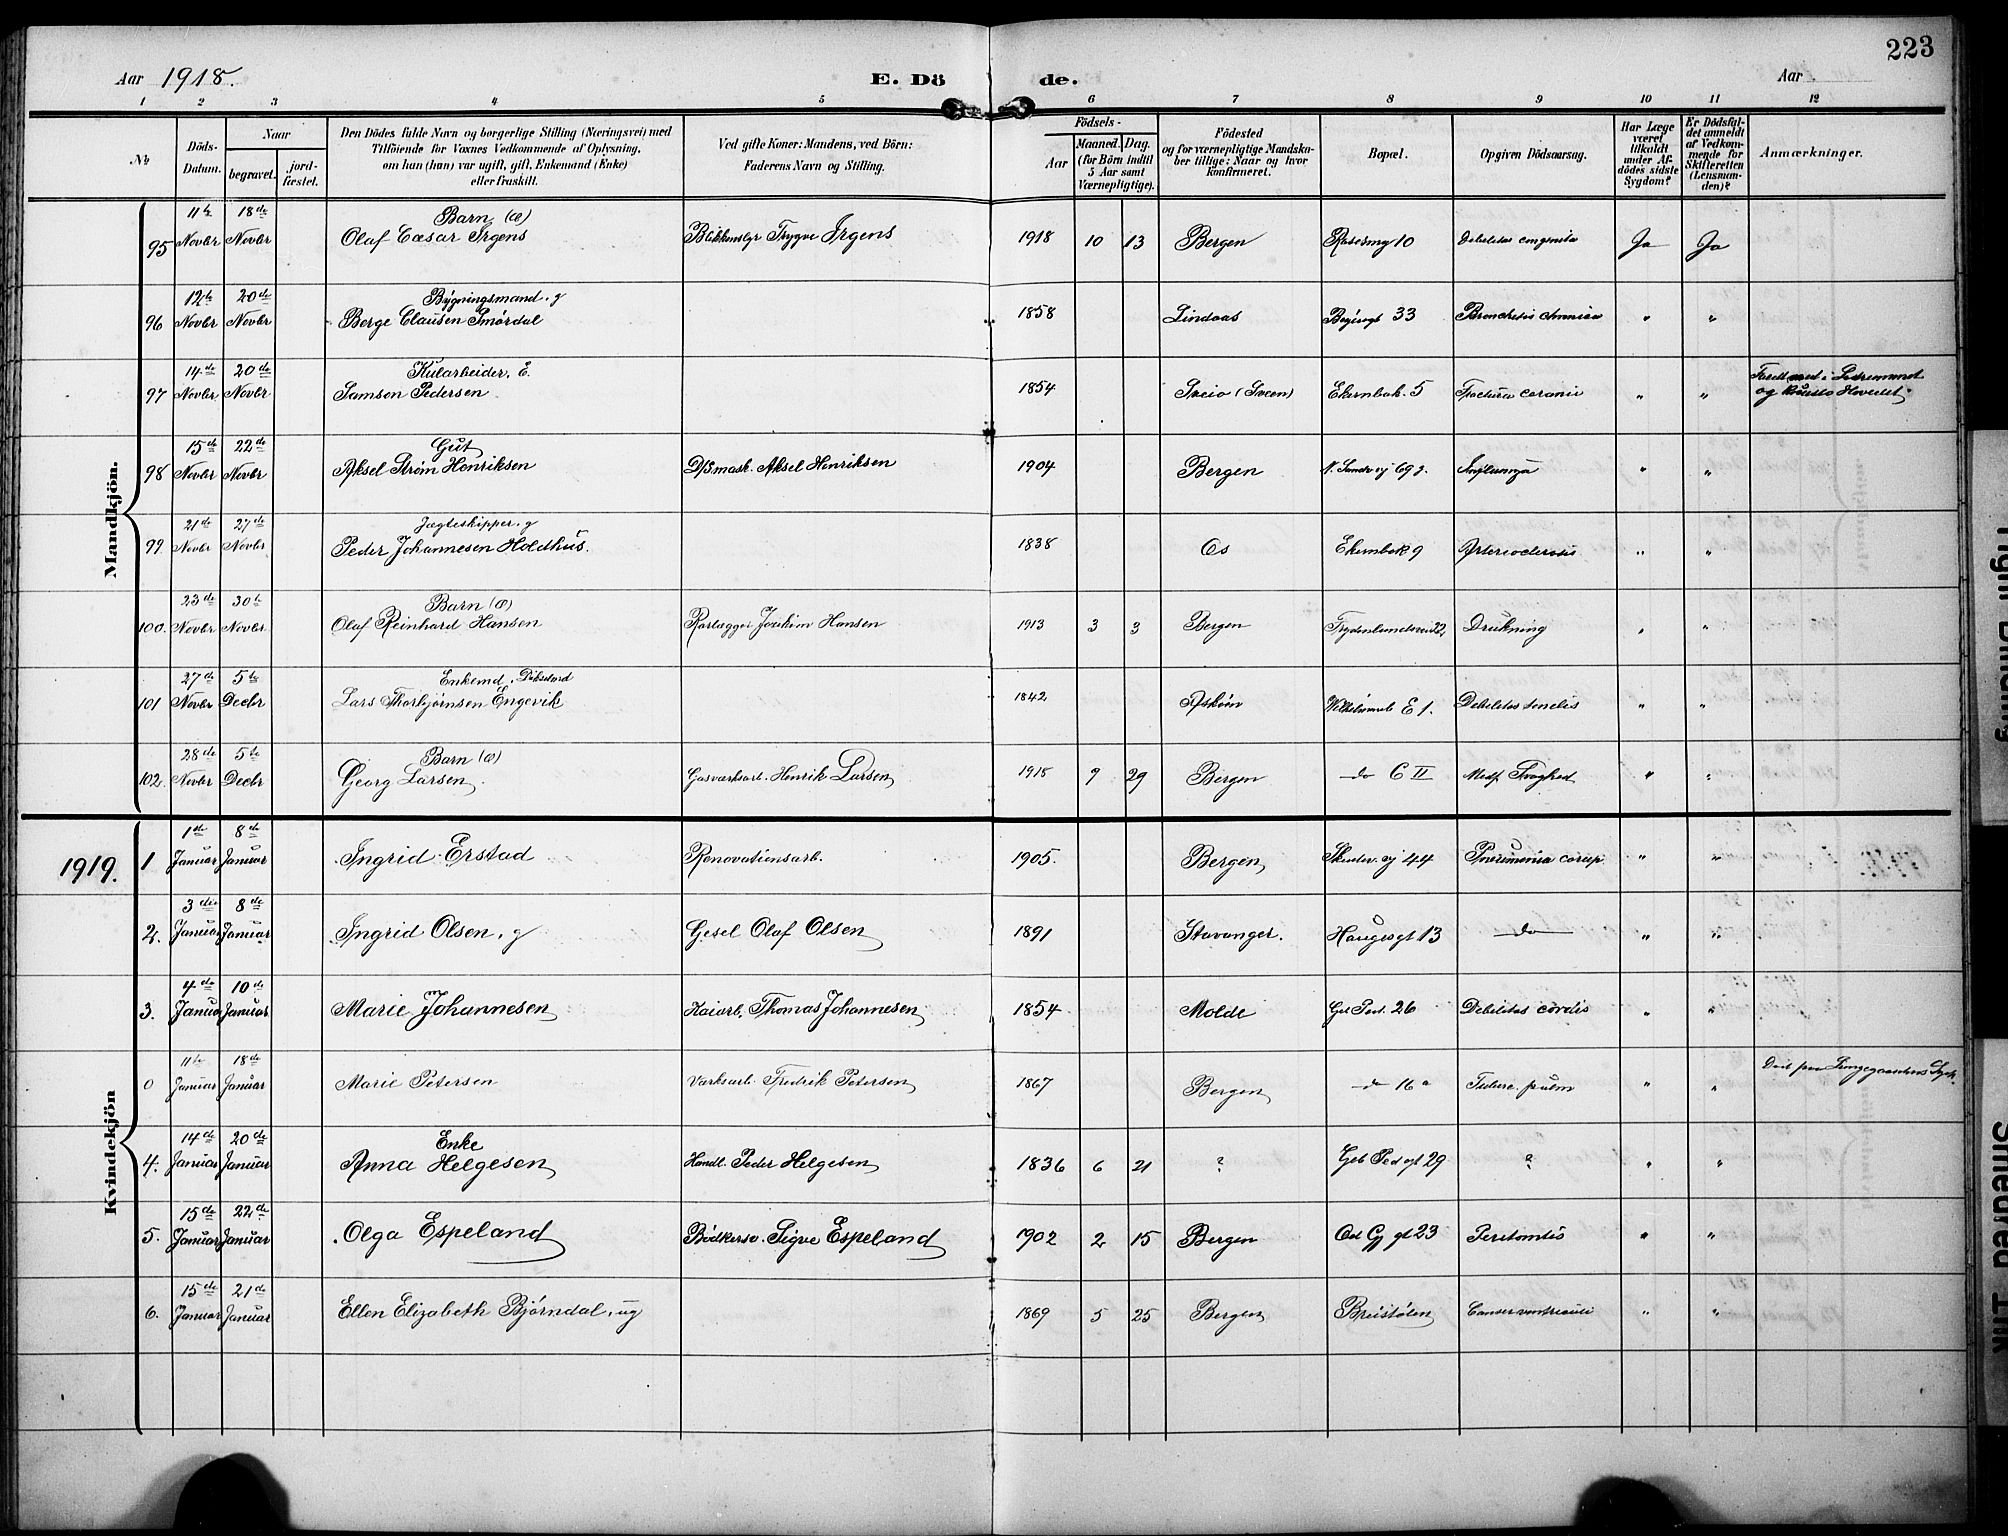 223
Aar 1918. E. Dö de. Aar
1 2 3 4 5 6 7 8 9 10 11 12
No
Döds-Datum.
Naar
begravet.
jord-fæstet.
Den Dödes fulde Navn og borgerlige Stilling (Næringsvei) med
Tilföiende for Voxnes Vedkommende af Oplysning,
om han (hun) var ugift, gift, Enkemand (Enke)
eller fraskilt.
Ved gifte Koner: Mandens, ved Börn:
Faderens Navn og Stilling.
Födsels-
Aar
Maaned. Dag.
(for Börn indtil
5 Aar samt
Værnepligtige).
Födested
og for værnepligtige Mandska-
ber tillige: Naar og hvor
konfirmeret.
Bopæl.
Opgiven Dödsaarsag.
Har Læge
været
tilkaldt
under Af-
dödes sidste
Sygdom?
Er Dödsfal-
det anmeldt
af Vedkom-
mende for
Skifteretten
(Lensman-
den)?
Anmærkninger.
Mandkjön.
95 11te Novbr 18de Novbr Barn (æ) Olaf Cæsar Irgens Trygve Irgens 1918 10 13 Bergen 10 Debilitas congenita Ja Ja
96 12te Novbr 20de Novbr Bygningsmand. g Berge Clausen Smørdal 1858 Lindaas 33 Bronchitis chronica " "
97 14de Novbr 20de Novbr Kularbeider. E. Samson Pedersen 1854 Sveio (Sveen) Ekernbak. 5 Fractura coranii " " og knuste Hovedet.
98 15de Novbr 22de Novbr Gut Aksel Strøm Henriksen D/S mask. Aksel Henriksen 1904 Bergen 69 Influenza " "
99. 21de Novbr 27de Novbr Jægteskipper. g Peder Johannesen Holdhus. 1838 Os Ekernbak 9 " "
100. 23de Novbr 30te Novbr Barn (æ) Olaf Reinhard Hansen Joakim Hansen 1913 3 3 Bergen Drukning " "
101 27de Novbr 5te Decbr Enkemd. Lars Thorbjørnsen Engevik 1842 Askøen E 1. Debilitas senilis " "
102. 28de Novbr 5te Decbr Barn (æ) Georg Larsen. Gasværksarb. Henrik Larsen 1918 9 29 Bergen do C II Medf Svaghed " "
1919.
Kvindekjön
1 1ste Januar 8de Januar Ingrid Erstad Renovationsarb. 1905. Bergen 44 Pneumonia corup. " "
2. 3die Januar 8de Januar Ingrid Olsen. g Gesel Olaf Olsen 1891 Stavanger. Haugesgt 13 do " "
3. 4de Januar 10de Januar Marie Johannesen Kaiarb. Thomas Johannesen 1854 Molde 26 Debilitas cordis " "
0 11te Januar 18de Januar Marie Petersen Værksarb. Fredrik Petersen 1867 Bergen do 16a Tuberc. pulm " " Død paa Lungegaardens Syk.
4. 14de Januar 20de Januar Enke Anna Helgesen Handl. Peder Helgesen 1836 6 21 ? 29 ? " "
5. 15de Januar 22de Januar Olga Espeland Bødkersv. Sigve Espeland 1902 2 15 Bergen gt 23 Peritonitis " "
6. 15de Januar 21de Januar Ellen Elizabeth Bjørndal. ug 1869 5 25 Bergen Breistølen Cancer ventriculi " "